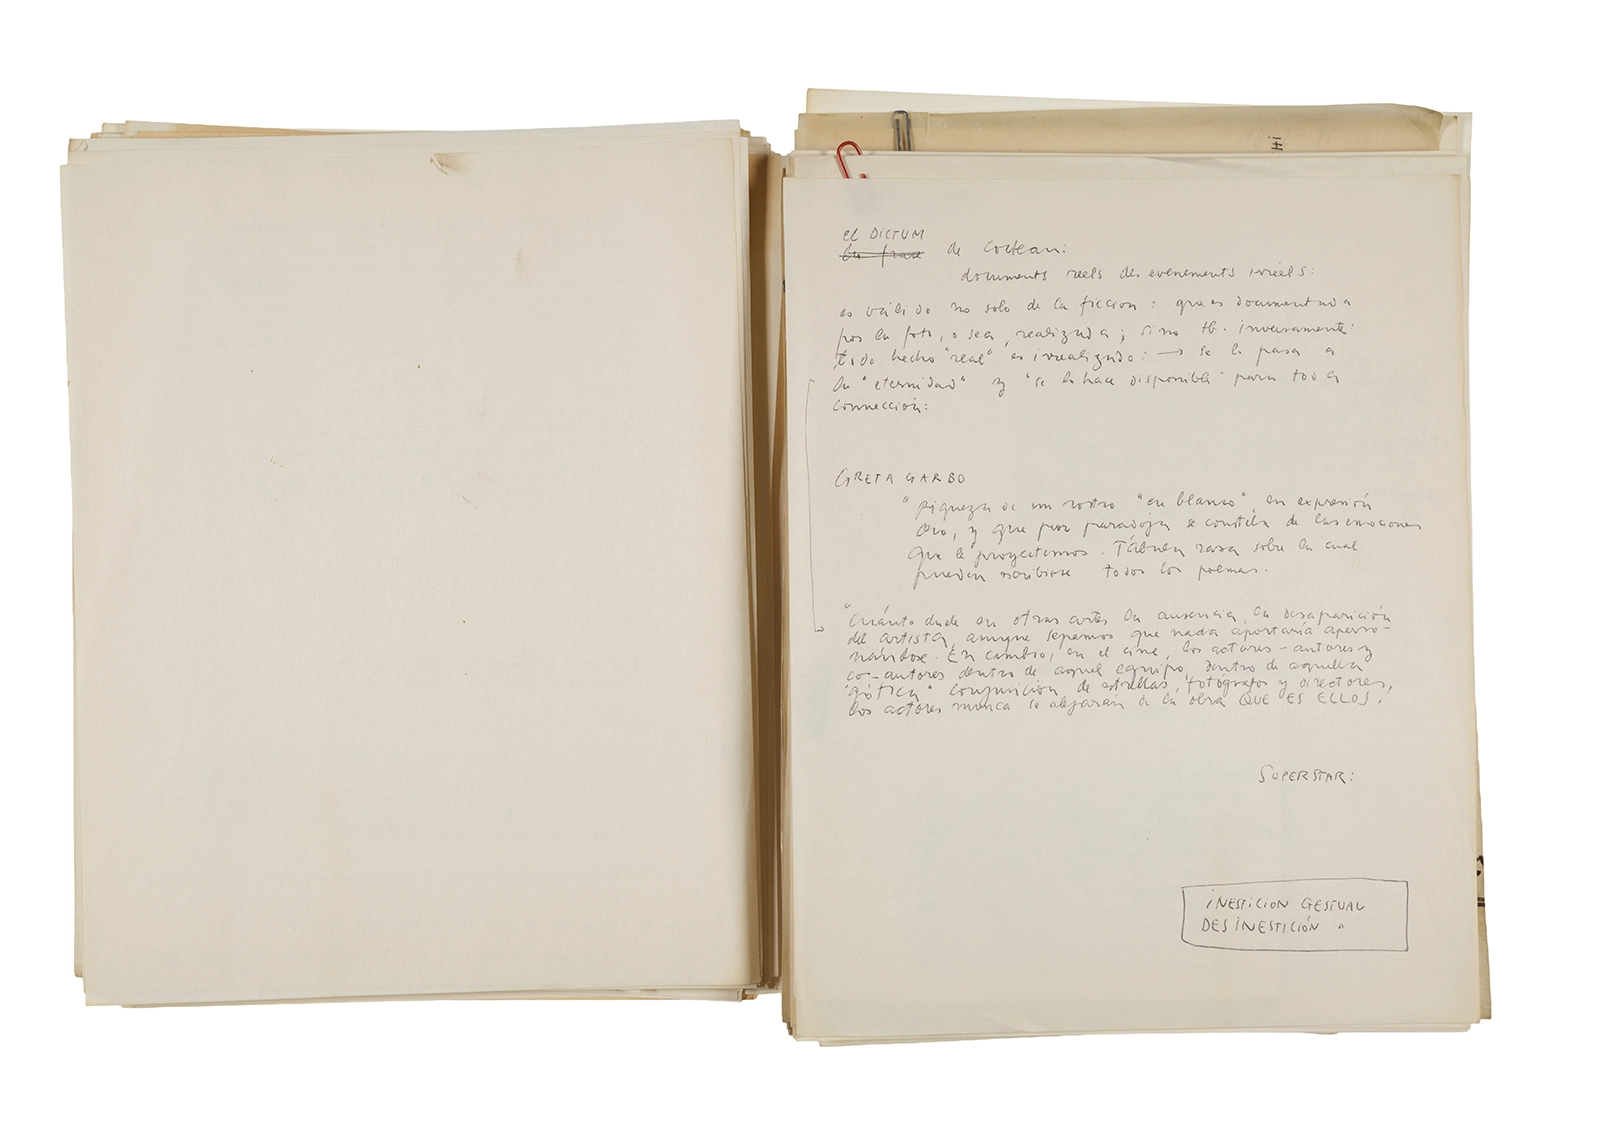 el DICTUM
La frase de Cocteau:
documents reels des evenements irréels:
es válido no solo de la ficcion: que es documentada
por la foto, o sea, realizada; sino tb. inversamente:
todo hecho "real" es irrealizado: → se lo pasa a
la "eternidad" y "se lo hace disponible" para toda
connección:
GRETA GARBO
" de un rostro "en blanco", en expresión
cero, y que por paradoja se constela de las emociones
que le proyectemos. Tábula rasa sobre la cual
pueden escribirse todos los poemas.
"Cuánto duele en otras artes la ausencia, la desaparición
del artista, aunque sepamos que nada aportaría aperso-
nándose. En cambio, en el cine, los actores-autores y
co-autores dentro de aquel equipo, dentro de aquella
"gótica" conjunción de estrellas, fotógrafos y directores,
los actores nunca se alejarán de la obra QUE ES ELLOS.
SUPERSTAR:
INESTICION GESTUAL
DESINESTICIÓN "